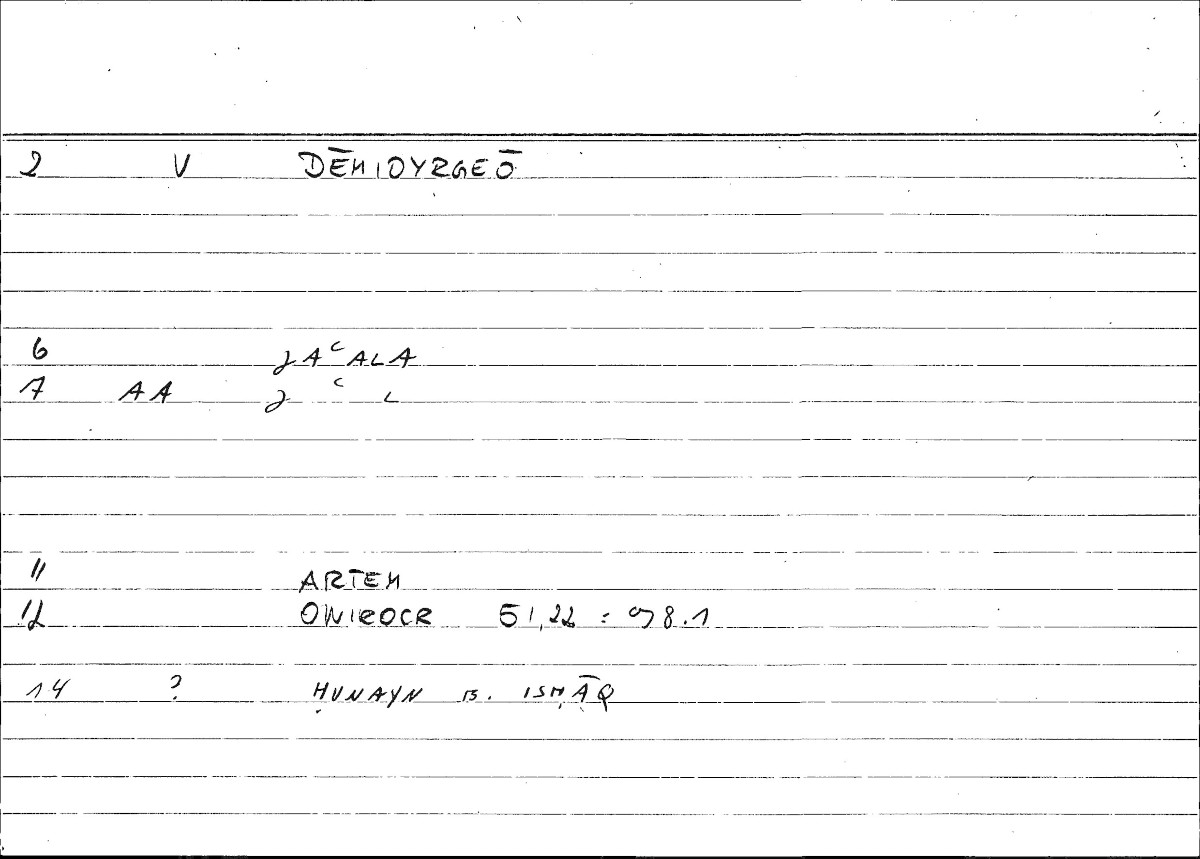 2 V DĒMIOYRGEŌ
6 ǧAʿALA
7 AA ǧ ʿ L
11 ARTEM
12 ONIROCR 51,22 : 98.1
14 ? ḤUNAYN B. ISḤĀQ